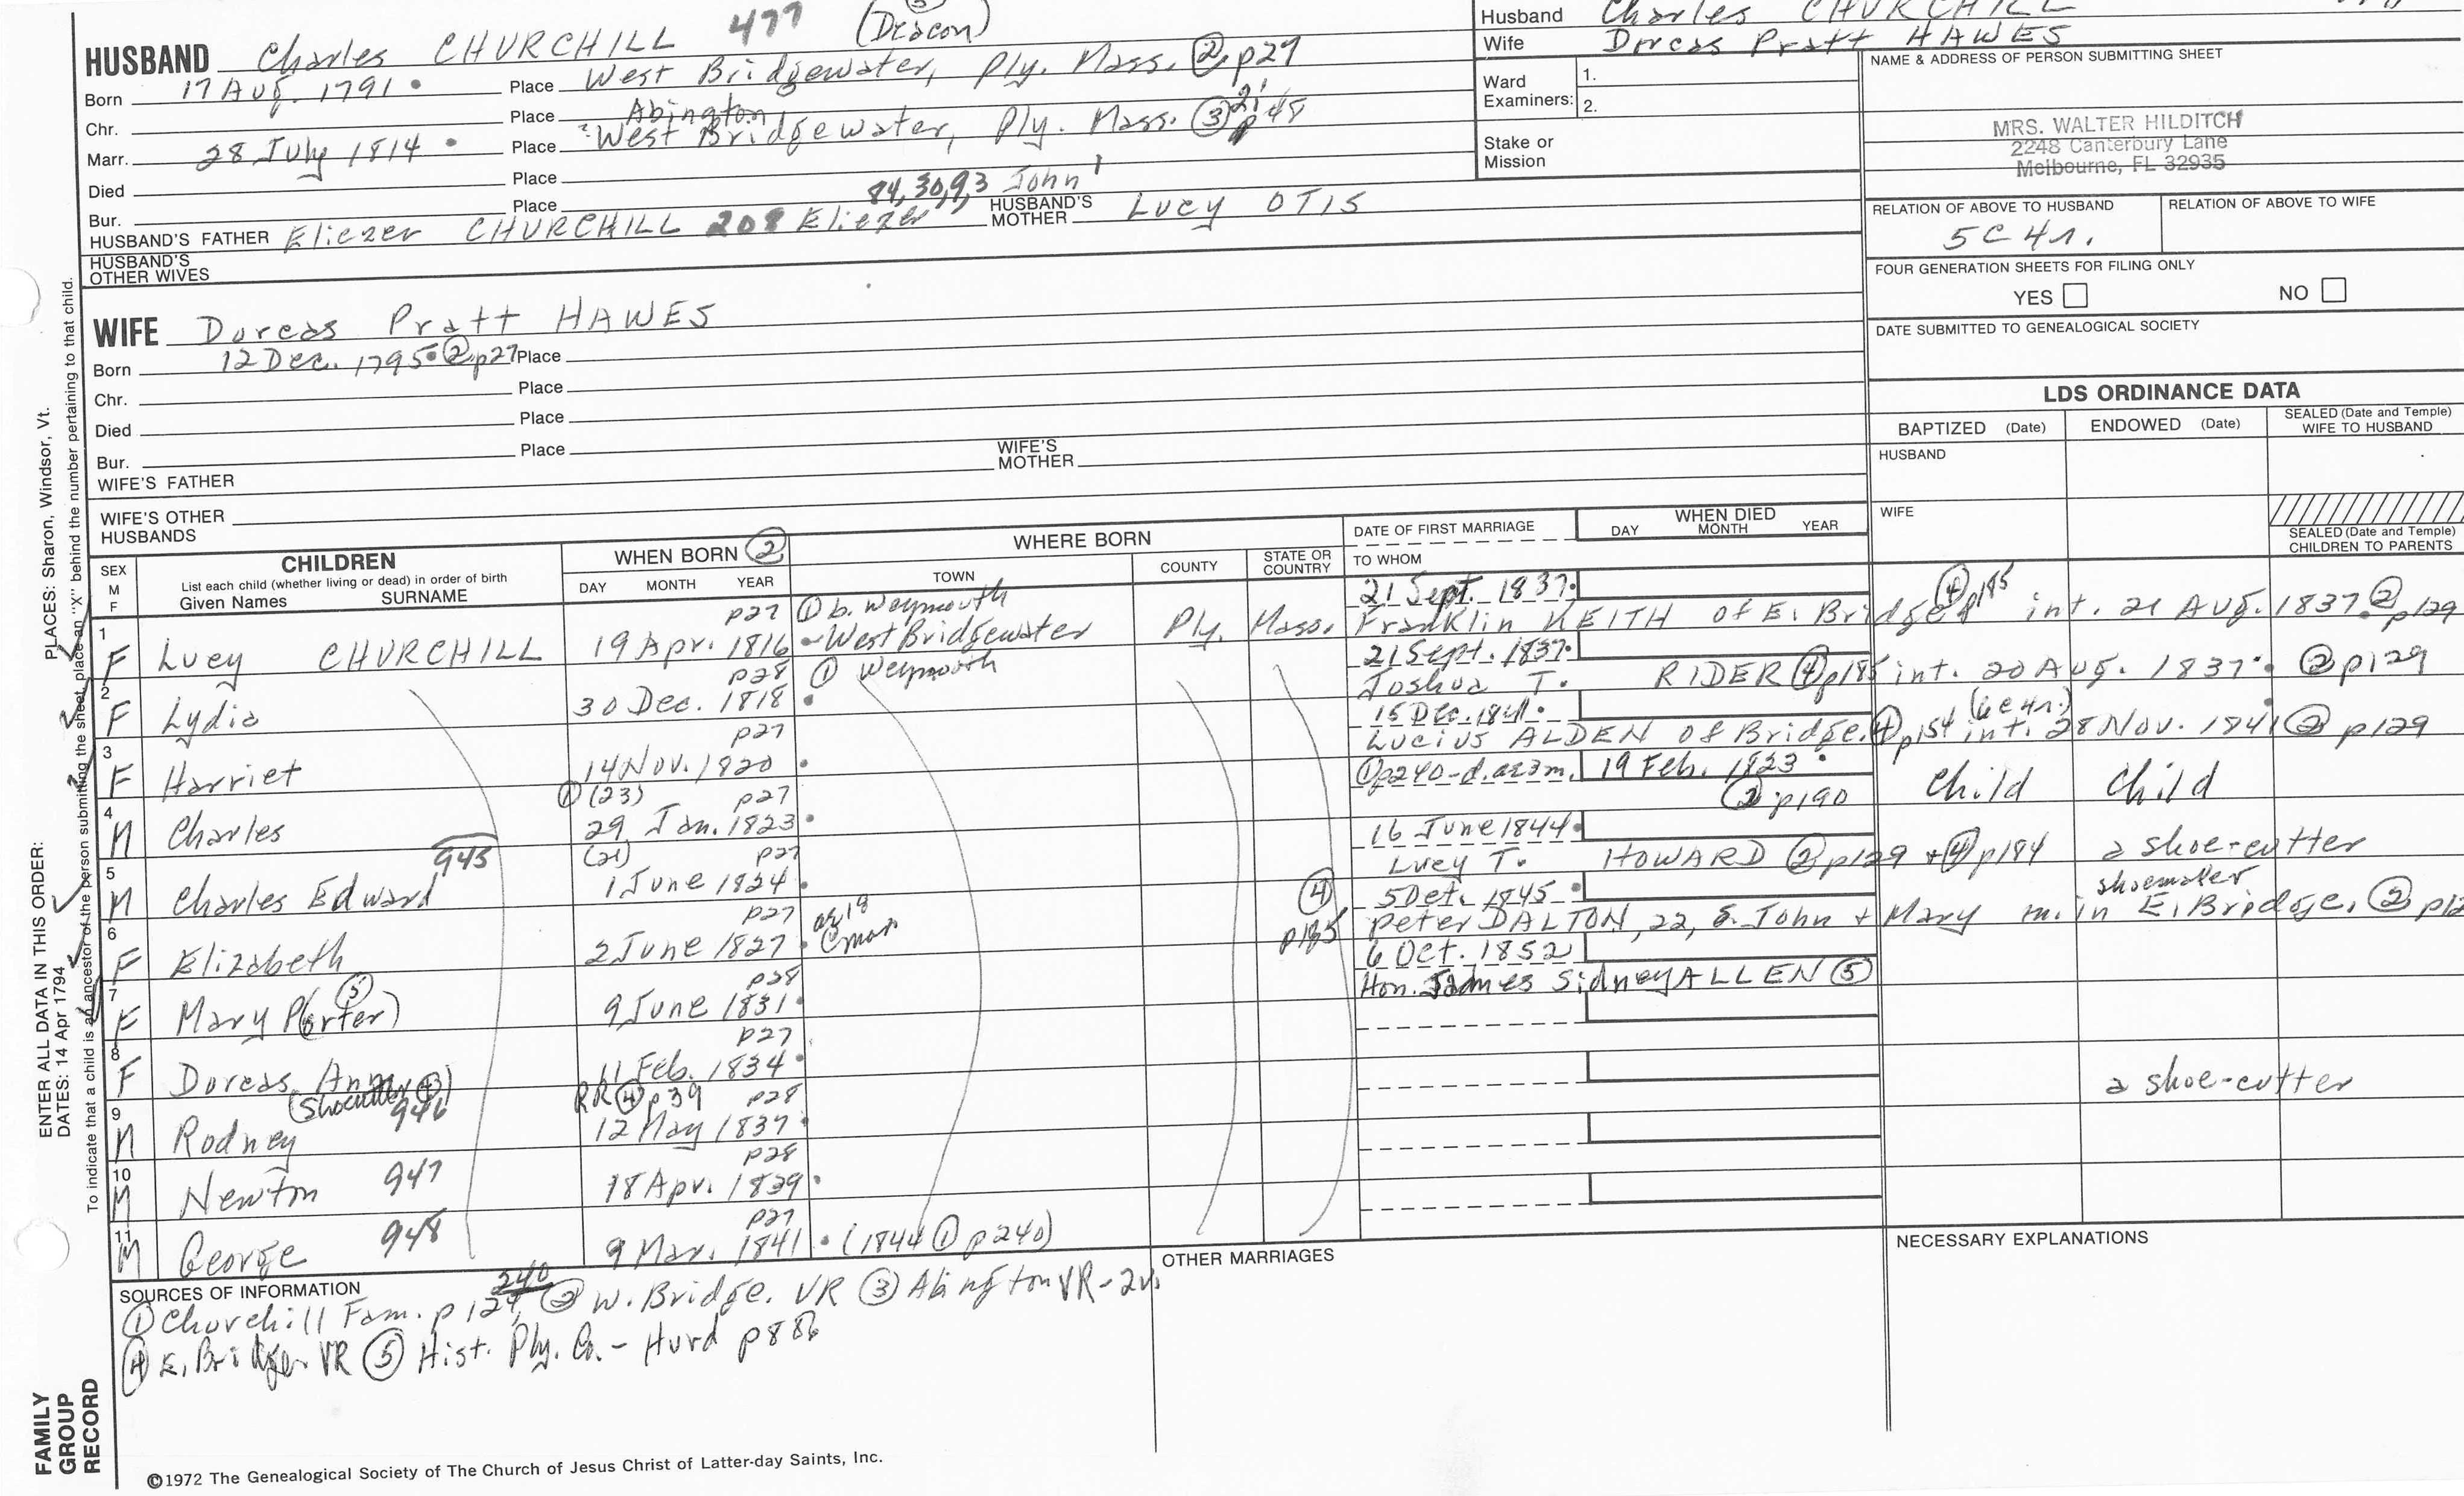 HUSBAND Charles CHURCHILL 477 (Deacon)
Born 17 Aug. 1791 • Place West Bridgewater, Ply. Mass. ② p27
Chr. Place Abington
Marr. 28 July 1814 • Place ? West Bridgewater, Ply. Mass. ③ 2, p48
Died Place
Bur. Place 84, 30, 9, 3 John 1
HUSBAND'S FATHER Eliezer CHURCHILL 208 Eliezer HUSBAND'S MOTHER Lucy OTIS
HUSBAND'S OTHER WIVES
WIFE Dorcas Pratt HAWES
Born 12 Dec. 1795 • ② p27 Place
Chr. Place
Died Place
Bur. Place
WIFE'S FATHER WIFE'S MOTHER
WIFE'S OTHER HUSBANDS
Husband Charles CHURCHILL
Wife Dorcas Pratt HAWES
Ward Examiners: 1.
2.
Stake or Mission
NAME & ADDRESS OF PERSON SUBMITTING SHEET
MRS. WALTER HILDITCH
2248 Canterbury Lane
Melbourne, FL 32935
RELATION OF ABOVE TO HUSBAND RELATION OF ABOVE TO WIFE
5C 4r.
FOUR GENERATION SHEETS FOR FILING ONLY
YES NO
DATE SUBMITTED TO GENEALOGICAL SOCIETY
LDS ORDINANCE DATA
BAPTIZED (Date) ENDOWED (Date) SEALED (Date and Temple) WIFE TO HUSBAND
HUSBAND
WIFE
SEALED (Date and Temple) CHILDREN TO PARENTS
SEX M F
CHILDREN
List each child (whether living or dead) in order of birth
Given Names SURNAME
WHEN BORN ②
DAY MONTH YEAR
WHERE BORN
TOWN COUNTY STATE OR COUNTRY
DATE OF FIRST MARRIAGE
TO WHOM
WHEN DIED
DAY MONTH YEAR
p27 ① b. Weymouth 21 Sept. 1837 •
1 F Lucy CHURCHILL 19 Apr. 1816 • West Bridgewater Ply. Mass. Franklin KEITH of E. Bridge ④ p185 int. 21 Aug. 1837 • ② p129
p28 ① Weymouth 21 Sept. 1837 •
2 F Lydia 30 Dec. 1818 • Joshua T. RIDER ④ p185 int. 20 Aug. 1837 • ② p129
p27 15 Dec. 1841 • (6c 4r.)
3 F Harriet 14 Nov. 1820 • Lucius ALDEN of Bridge. ④ p154 int. 28 Nov. 1841 ② p129
① (23) p27 ① p240-d. ae 3m. 19 Feb. 1823 •
4 M Charles 29 Jan. 1823 • ② p190 Child Child
945 (21) p27 16 June 1844 •
5 M Charles Edward 1 June 1824 • Lucy T. HOWARD ② p129 + ④ p184 a shoe-cutter
p27 ae 18 ④ 5 Oct. 1845 • shoemaker
6 F Elizabeth 2 June 1827 • p185 Peter DALTON, 22, s. John + Mary m. in E. Bridge, ② p12
p28 6 Oct. 1852
7 F Mary P(orter) ⑤ 9 June 1831 • Hon. James Sidney ALLEN ⑤
p27
8 F Dorcas Ann 11 Feb. 1834 •
(Shoecutter ④) 946 RR ④ p39 p28
9 M Rodney 12 May 1837 • a shoe-cutter
p28
10 M Newton 947 18 Apr. 1839 •
p27
11 M George 948 9 Mar. 1841 • (1844 ① p240)
SOURCES OF INFORMATION
① Churchill Fam. p 129, 240 ② W. Bridge. VR ③ Abington VR-2v.
④ E. Bridge. VR ⑤ Hist. Ply. Co. - Hurd p886
OTHER MARRIAGES
NECESSARY EXPLANATIONS
©1972 The Genealogical Society of The Church of Jesus Christ of Latter-day Saints, Inc.
FAMILY GROUP RECORD
ENTER ALL DATA IN THIS ORDER:
DATES: 14 Apr 1794
PLACES: Sharon, Windsor, Vt.
To indicate that a child is an ancestor of the person submitting the sheet, place an "X" behind the number pertaining to that child.